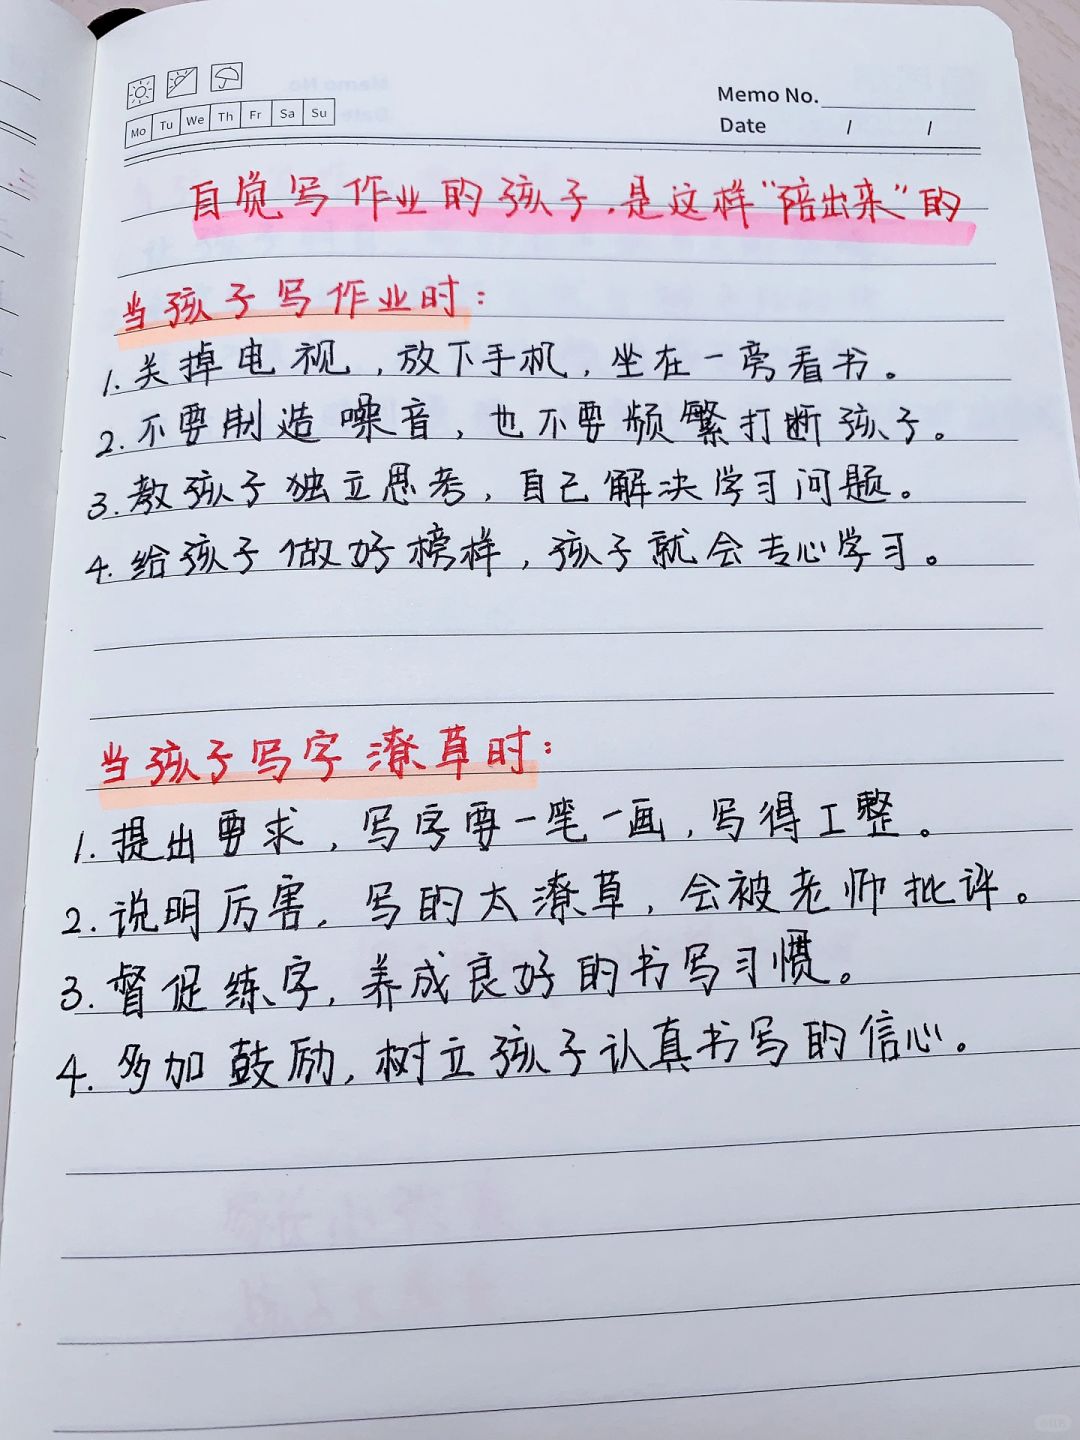 Memo No.
Mo Tu We Th Fr Sa Su
Date / /
自觉写作业的孩子,是这样“陪出来”的
当孩子写作业时:
1.关掉电视,放下手机,坐在一旁看书。
2.不要制造噪音,也不要频繁打断孩子。
3.教孩子独立思考,自己解决学习问题。
4.给孩子做好榜样,孩子就会专心学习。
当孩子写字潦草时:
1.提出要求,写字要一笔一画,写得工整。
2.说明厉害,写的太潦草,会被老师批评。
3.督促练字,养成良好的书写习惯。
4.多加鼓励,树立孩子认真书写的信心。